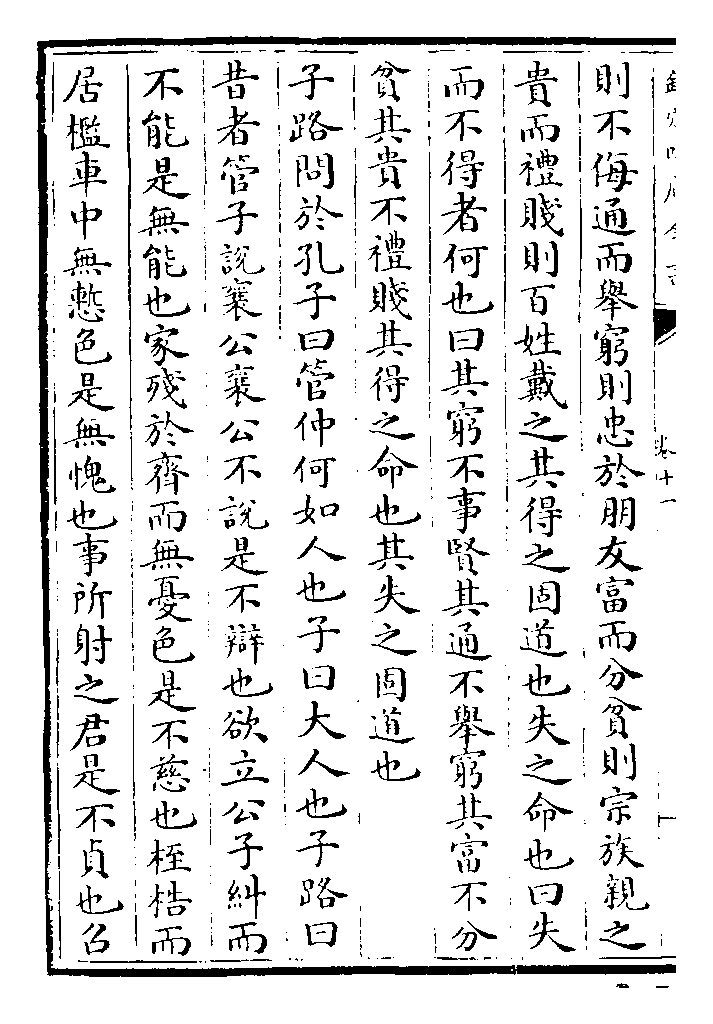 卷十一
則不侮通而舉窮則忠於朋友富而分貧則宗族親之
貴而禮賤則百姓戴之其得之固道也失之命也曰失
而不得者何也曰其窮不事賢其通不舉窮其富不分
貧其貴不禮賤其得之命也其失之固道也
子路問於孔子曰管仲何如人也子曰大人也子路曰
昔者管子說襄公襄公不說是不辯也欲立公子糾而
不能是無能也家殘於齊而無憂色是不慈也桎梏而
居檻車中無慙色是無愧也事所射之君是不貞也召